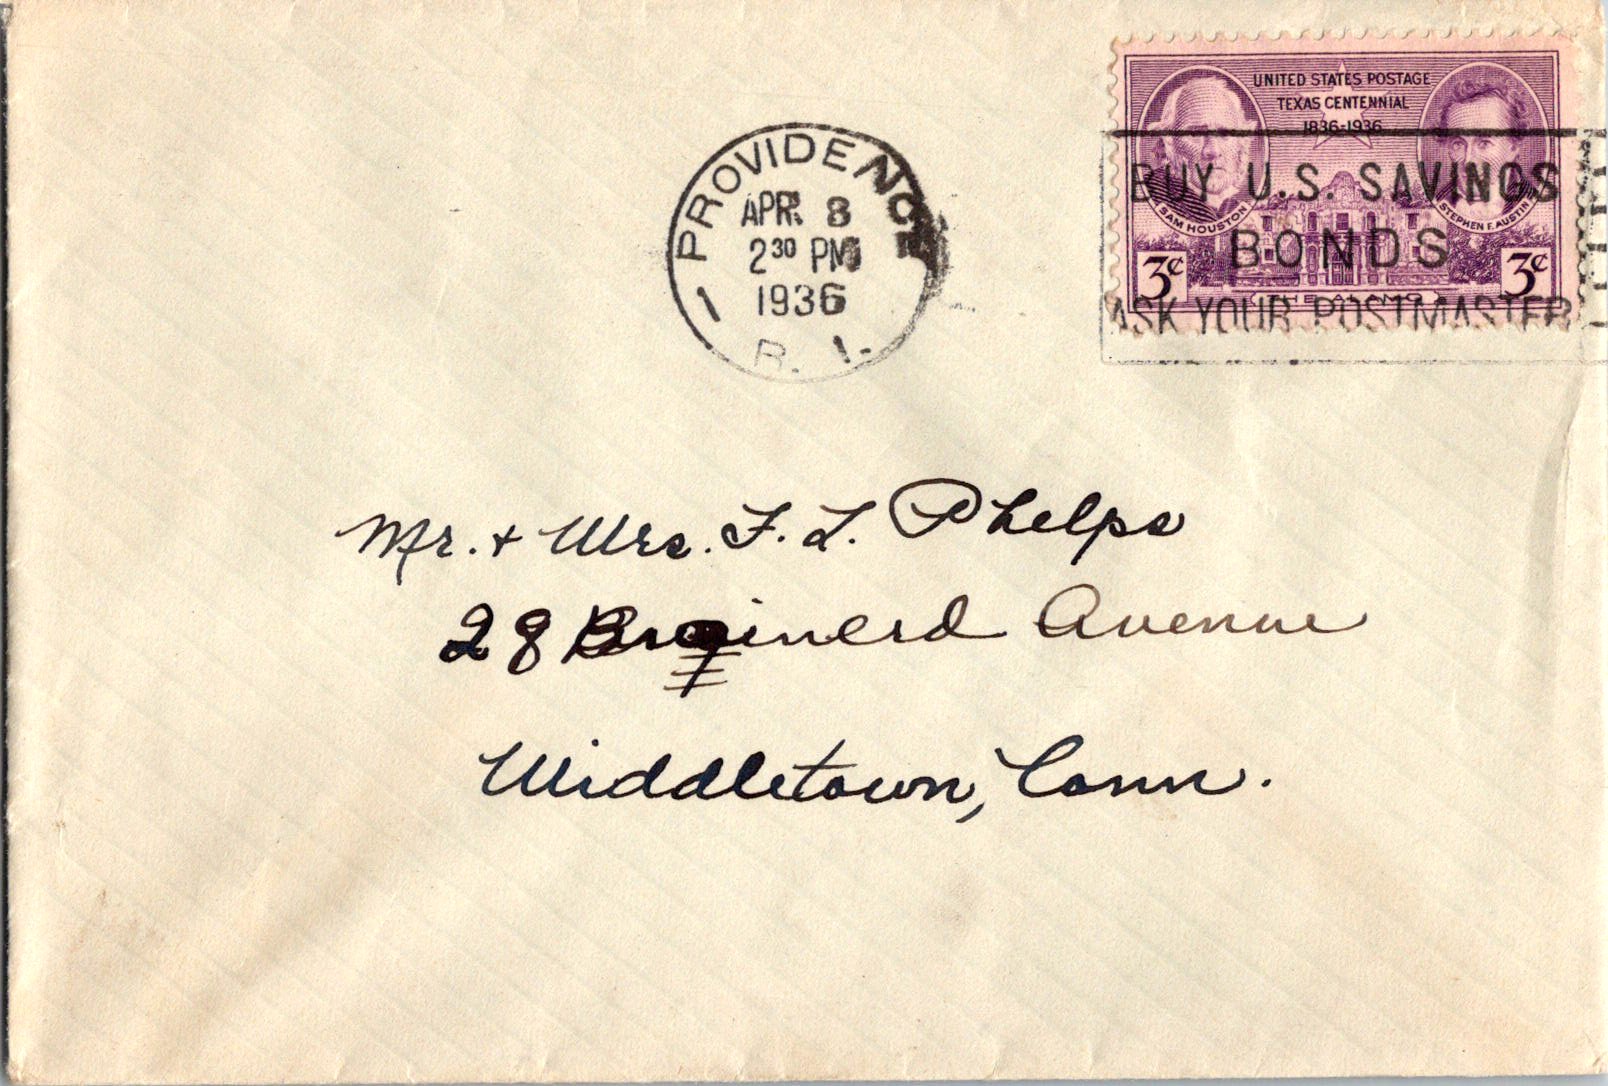 UNITED STATES POSTAGE
TEXAS CENTENNIAL
1836-1936
SAM HOUSTON
STEPHEN F. AUSTIN
3¢ 3¢
THE ALAMO
PROVIDENCE
APR 8
2 30 PM
1936
1
R. I.
BUY U.S. SAVINGS
BONDS
ASK YOUR POSTMASTER
Mr. + Mrs. F. L. Phelps
28 Brainerd Avenue
Middletown, Conn.